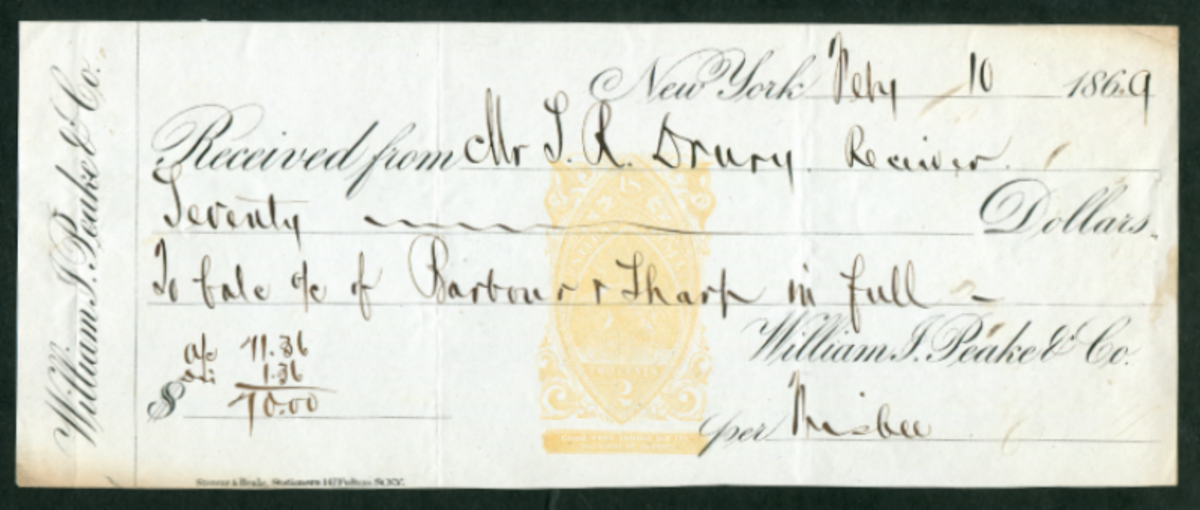 William I. Peake & Co.
New York Feby 10 1869
Received from Mr S. R. Drury Receiver
Seventy Dollars.
To bale a/c of Barbour & Sharp in full -
William I. Peake & Co.
a/c 71.36
1.36
$ 70.00
2
per
Stationers 147 Fulton St. N.Y.